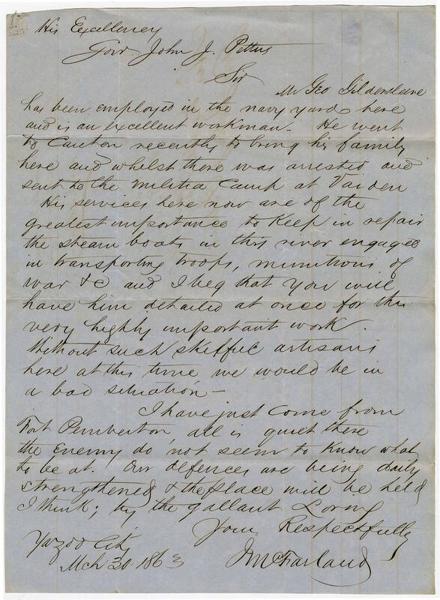 His Excellency
Govr John J. Pettus
Sir
Mr Geo Gildersleave
has been employed in the navy yards here
and is an excellent workman. He went
to Canton recently to bring his family
here and whilst there was arrested and
sent to the militia Camp at Vaiden
His services here now are of the
greatest importance to Keep in repair
the steam boats in this river engaged
in transporting troops, munitions of
war &c and I beg that you will
have him detailed at once for this
very highly important work.
Without such skilful artisans
here at this time we would be in
a bad situation—
I have just come from
Fort Pemberton all is quiet there
the Enemy do not seem to Know what
to be at. Our defences are being daily
strengthened & the place will be held
I think, by the gallant Loring
Your Respectfully
Yazoo City
J McFarland
Mch 30 1863